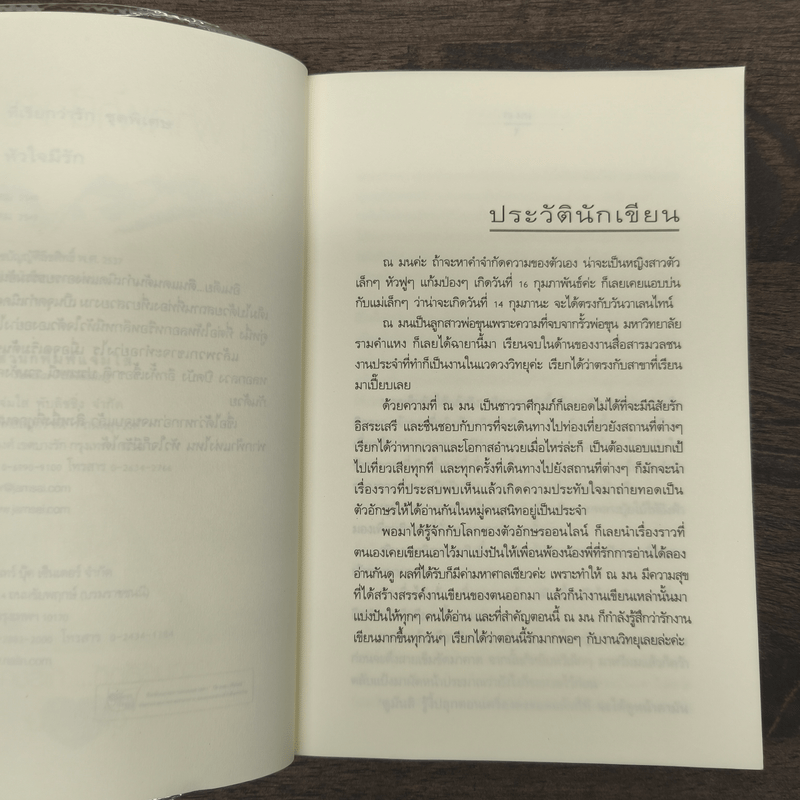 ประวัตินักเขียน
ณ มนค่ะ ถ้าจะหาคำจำกัดความของตัวเอง น่าจะเป็นหญิงสาวตัว
เล็กๆ หัวฟูๆ แก้มป่องๆ เกิดวันที่ 16 กุมภาพันธ์ค่ะ ก็เลยเคยแอบบ่น
กับแม่เล็กๆ ว่าน่าจะเกิดวันที่ 14 กุมภานะ จะได้ตรงกับวันวาเลนไทน์
ณ มนเป็นลูกสาวพ่อขุนเพราะความที่จบจากรั้วพ่อขุน มหาวิทยาลัย
รามคำแหง ก็เลยได้ฉายานี้มา เรียนจบในด้านของงานสื่อสารมวลชน
งานประจำที่ทำก็เป็นงานในแวดวงวิทยุค่ะ เรียกได้ว่าตรงกับสาขาที่เรียน
มาเปี๊ยบเลย
ด้วยความที่ ณ มน เป็นชาวราศีกุมภ์ก็เลยอดไม่ได้ที่จะมีนิสัยรัก
อิสระเสรี และชื่นชอบกับการที่จะเดินทางไปท่องเที่ยวยังสถานที่ต่างๆ
เรียกได้ว่าหากเวลาและโอกาสอำนวยเมื่อไหร่ล่ะก็ เป็นต้องแอบแบกเป้
ไปเที่ยวเสียทุกที และทุกครั้งที่เดินทางไปยังสถานที่ต่างๆ ก็มักจะนำ
เรื่องราวที่ประสบพบเห็นแล้วเกิดความประทับใจมาถ่ายทอดเป็น
ตัวอักษรให้ได้อ่านกันในหมู่คนสนิทอยู่เป็นประจำ
พอมาได้รู้จักกับโลกของตัวอักษรออนไลน์ ก็เลยนำเรื่องราวที่
ตนเองเคยเขียนเอาไว้มาแบ่งปันให้เพื่อนพ้องน้องพี่ที่รักการอ่านได้ลอง
อ่านกันดู ผลที่ได้รับก็มีค่ามหาศาลเชียวค่ะ เพราะทำให้ ณ มน มีความสุข
ที่ได้สร้างสรรค์งานเขียนของตนออกมา แล้วก็นำงานเขียนเหล่านั้นมา
แบ่งปันให้ทุกๆ คนได้อ่าน และที่สำคัญตอนนี้ ณ มน ก็กำลังรู้สึกว่ารักงาน
เขียนมากขึ้นทุกวันๆ เรียกได้ว่าตอนนี้รักมากพอๆ กับงานวิทยุเลยล่ะค่ะ